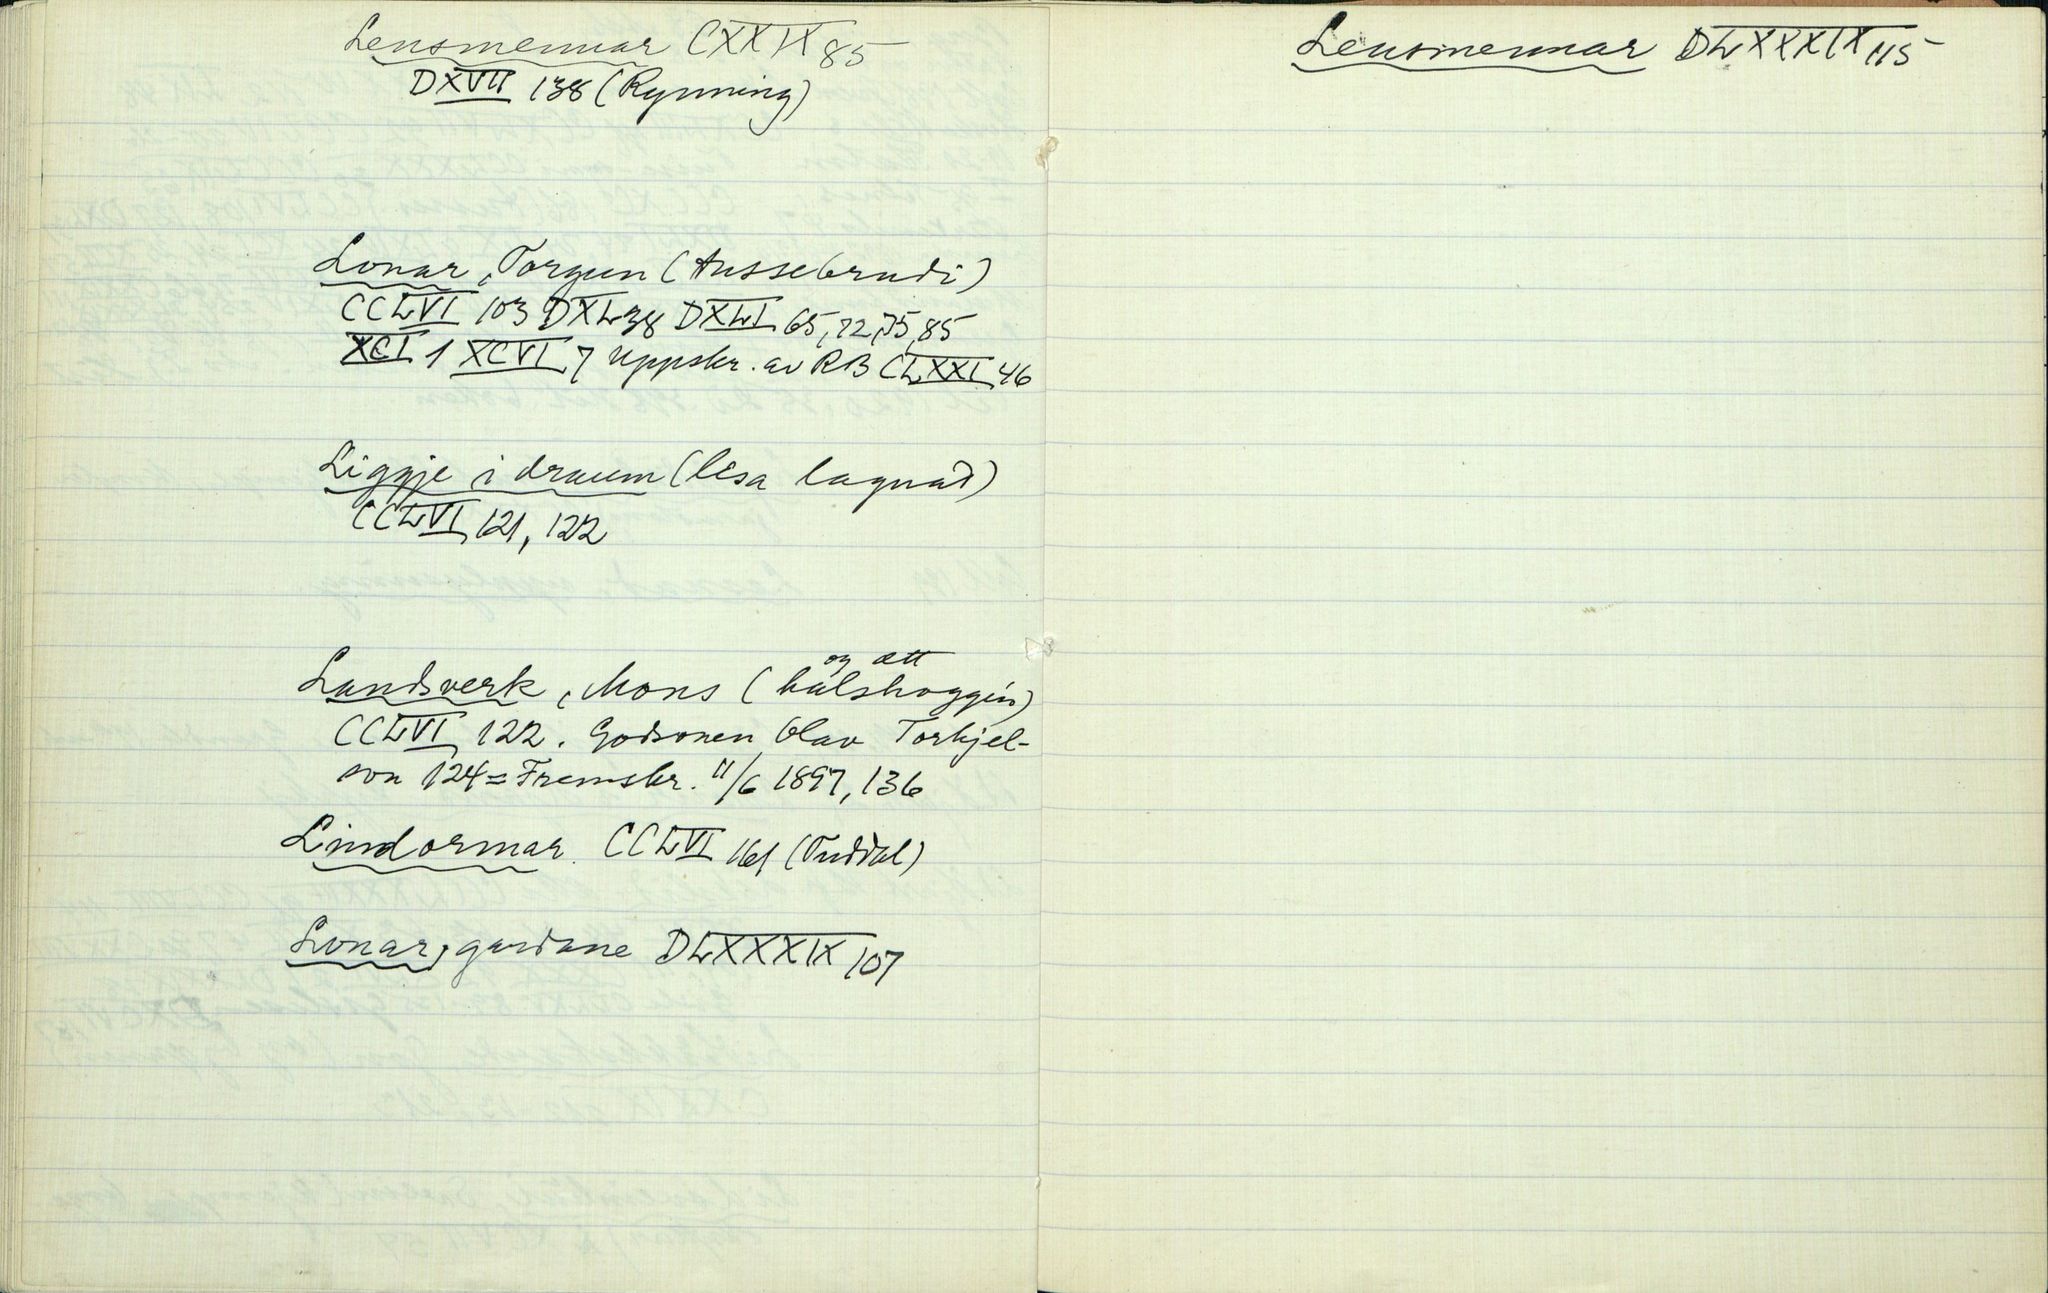 Lensmennar CXXIX 85
DXVII 138 (Rynning)
Lonar, Torgun (Hussebrudi)
CCLVI 103 DXL 38 DXLI 65, 72, 75, 85
XCI 1 XCVI 7 Uppskr. av RB CLXXI 46
Liggje i draum (lesa lagnad)
CCLVI 121, 122
og ætt
Landsverk, Mons (halshoggin)
CCLVI 122. Godsonen Olav Torkjel-
son 124 = Fremskr. 11/6 1897, 136
Lindormar CCLVI 161 (Tuddal)
Lonar, gardane DLXXXIX 107
Lensmennar DLXXXIX 115